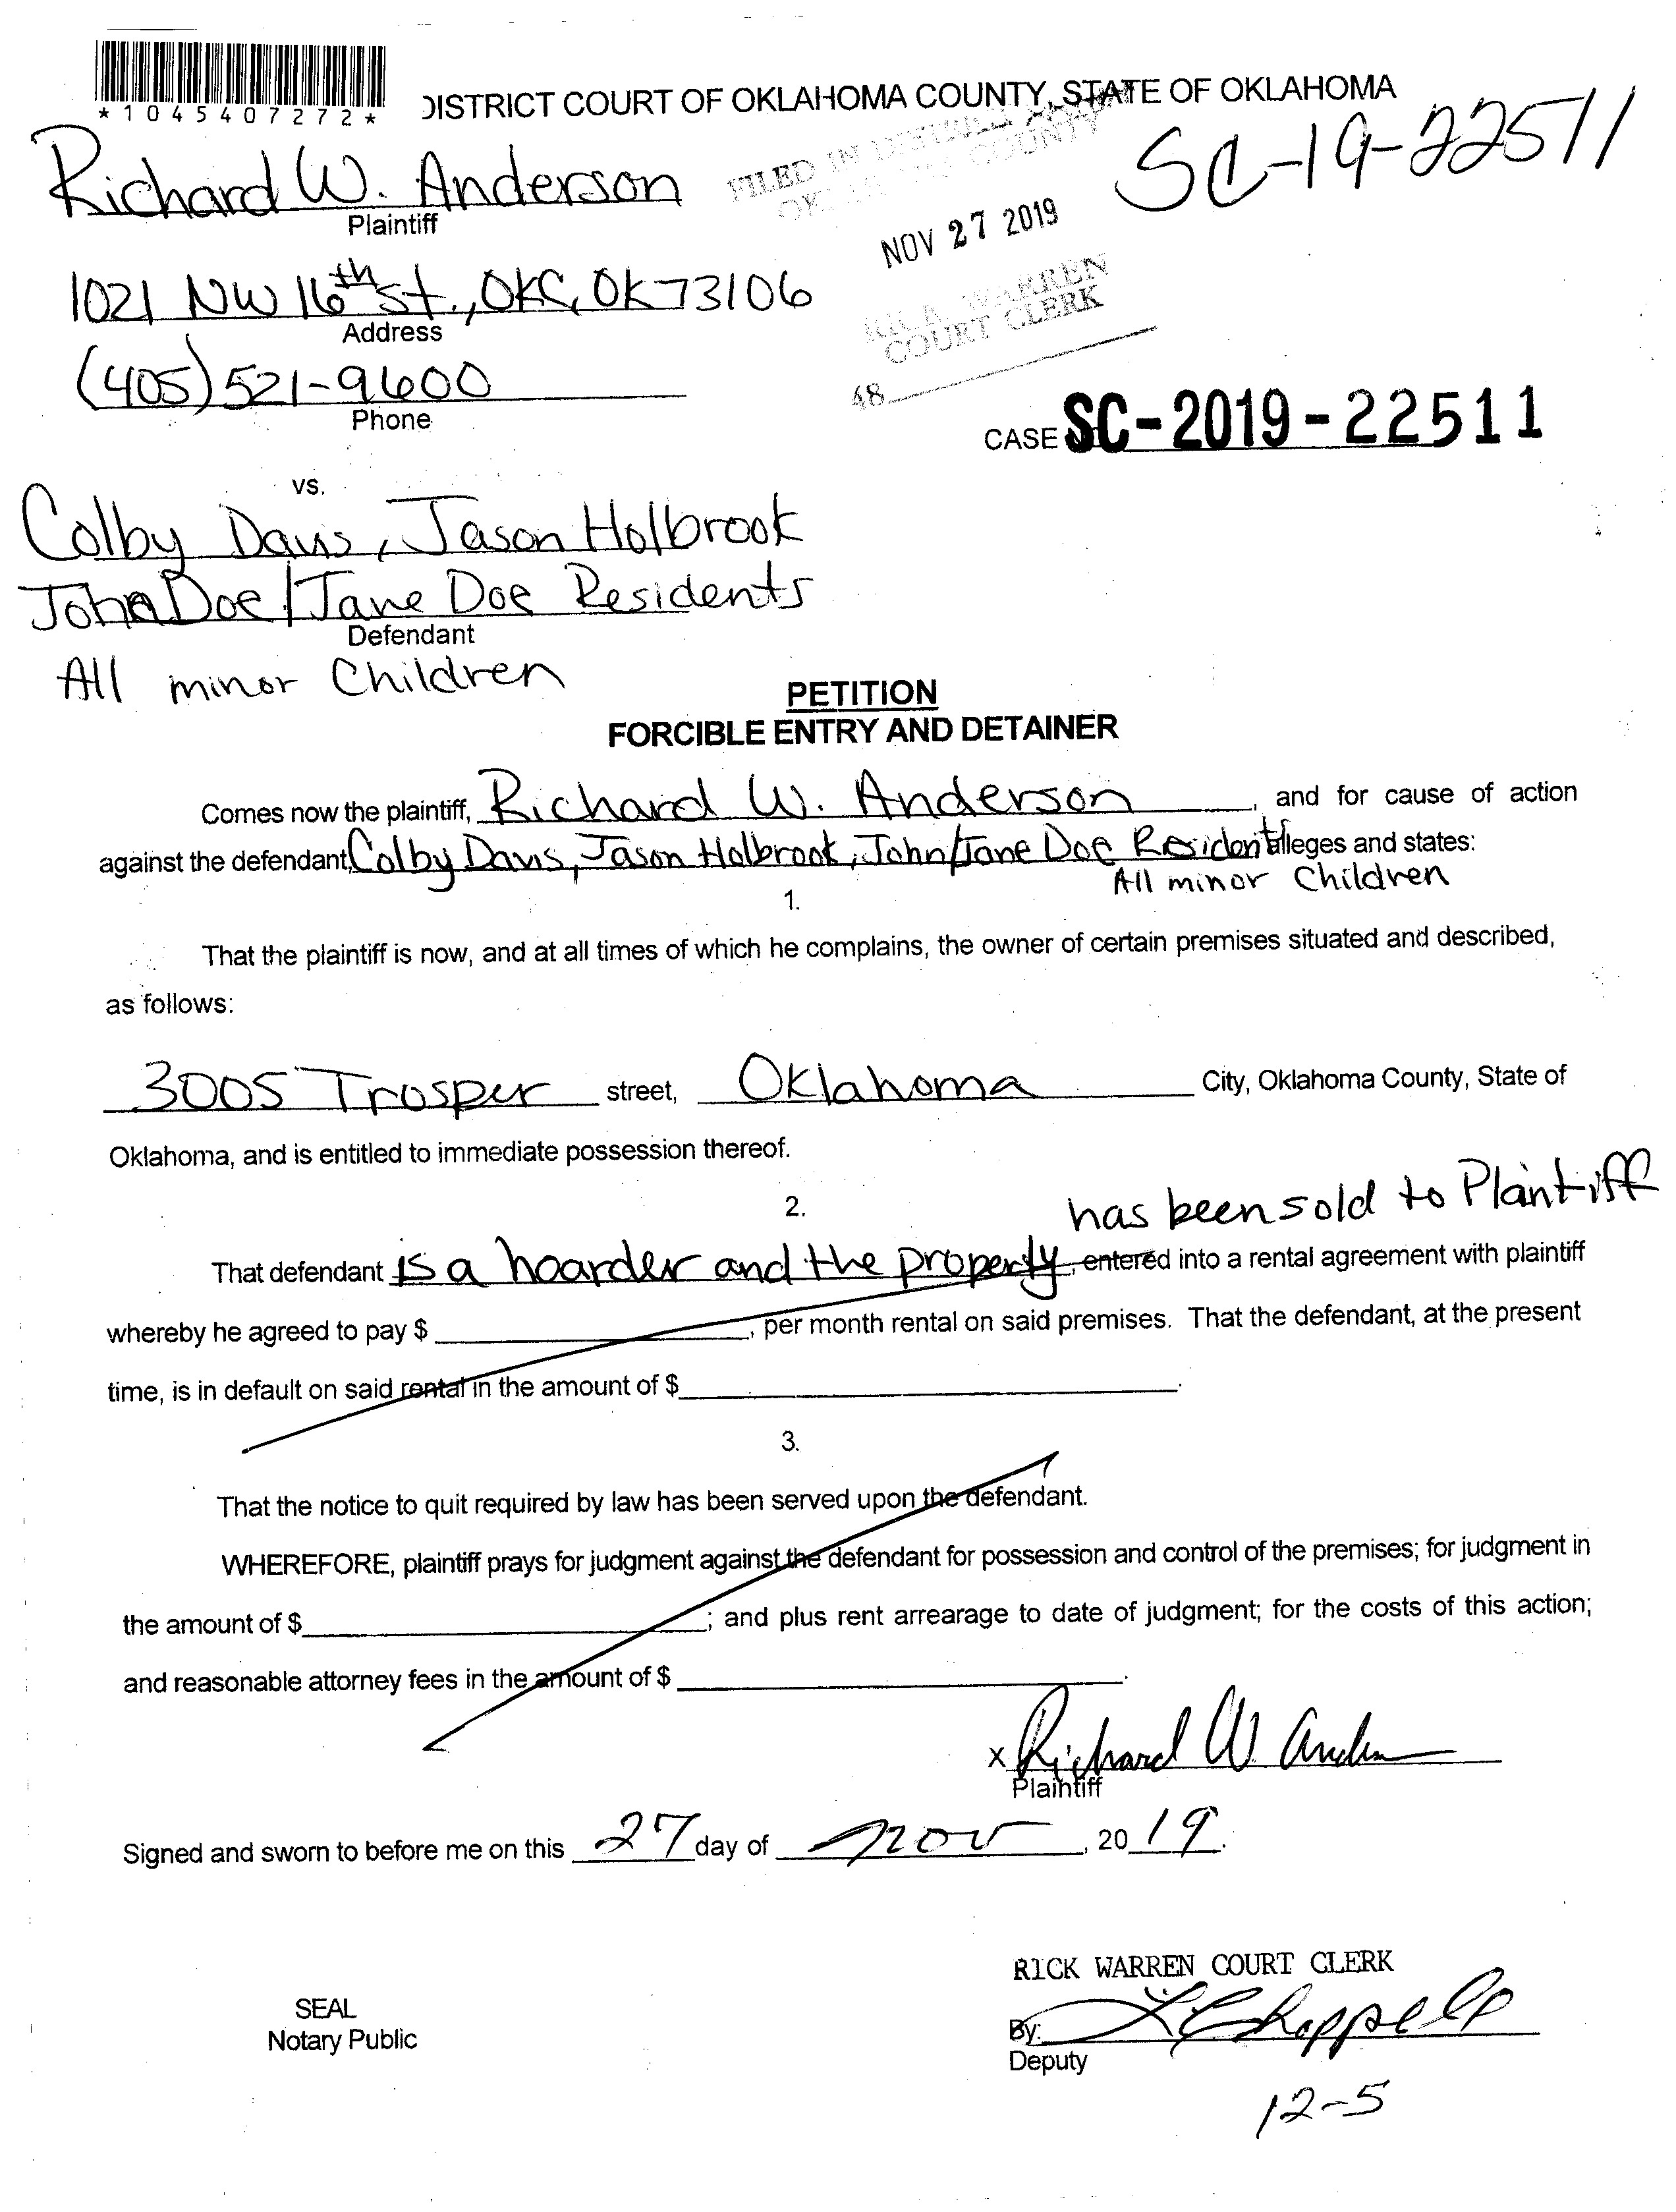 *1045407272*
DISTRICT COURT OF OKLAHOMA COUNTY, STATE OF OKLAHOMA
SC-19-22511
Richard W. Anderson
Plaintiff
FILED IN DISTRICT COURT
OKLAHOMA COUNTY
NOV 27 2019
1021 NW 16th St., OKC, OK 73106
Address
RICK WARREN
COURT CLERK
(405) 521-9600
Phone
48
CASE NO. SC-2019-22511
vs.
Colby Davis, Jason Holbrook
John Doe/Jane Doe Residents
Defendant
All minor Children
PETITION
FORCIBLE ENTRY AND DETAINER
Comes now the plaintiff, Richard W. Anderson, and for cause of action
against the defendant, Colby Davis, Jason Holbrook, John/Jane Doe Resident alleges and states:
All minor Children
1.
That the plaintiff is now, and at all times of which he complains, the owner of certain premises situated and described,
as follows:
3005 Trosper street, Oklahoma City, Oklahoma County, State of
Oklahoma, and is entitled to immediate possession thereof.
2.
has been sold to Plaintiff
That defendant is a hoarder and the property, entered into a rental agreement with plaintiff
whereby he agreed to pay $ , per month rental on said premises. That the defendant, at the present
time, is in default on said rental in the amount of $ .
3.
That the notice to quit required by law has been served upon the defendant.
WHEREFORE, plaintiff prays for judgment against the defendant for possession and control of the premises; for judgment in
the amount of $ ; and plus rent arrearage to date of judgment; for the costs of this action;
and reasonable attorney fees in the amount of $ .
x Richard W Anderson
Plaintiff
Signed and sworn to before me on this 27 day of nov, 20 19.
RICK WARREN COURT CLERK
SEAL
Notary Public
By: L Chappell
Deputy
12-5